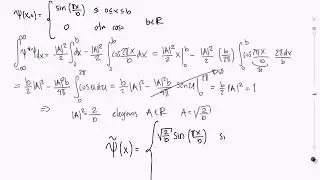 ψ(x,0) = { sin(πx/b) si 0≤x≤b
0 otro caso b∈ℝ
∫_{-∞}^{∞} ψ*ψ dx = |A|²/2 ∫_0^b dx - |A|²/2 ∫_0^b cos(2πx/b) dx = |A|²/2 x|_0^b - |A|²/2 (b/2π) ∫_0^b cos(2πx/b) 2π/b dx
= b/2 |A|² - |A|²b/4π ∫_0^{2π} cos u du = b/2 |A|² - |A|²b/4π sen u|_0^{2π} = b/2 |A|² = 1
⇒ |A|² = 2/b elegimos A∈ℝ A = √(2/b)
ψ̃(x) = { √(2/b) sin(πx/b) si